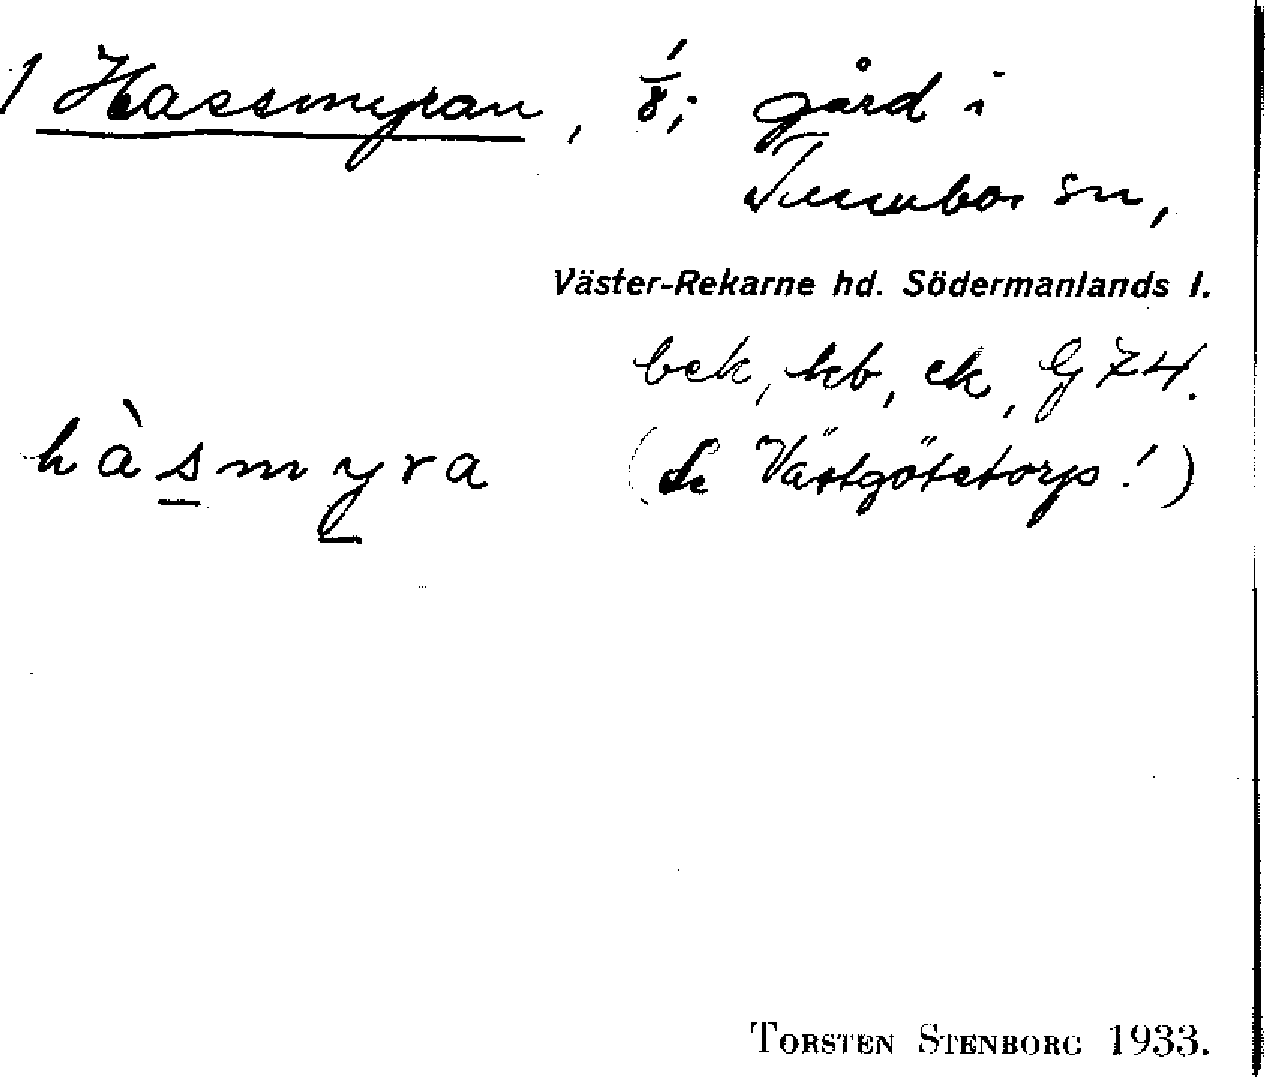 1 Hassmyran, 1/8; gård i
Tumbo sn,
Väster-Rekarne hd. Södermanlands l.
bek, kb, ek, G 74.
hàsmyra (Se Västgötetorp!)
TORSTEN STENBORG 1933.